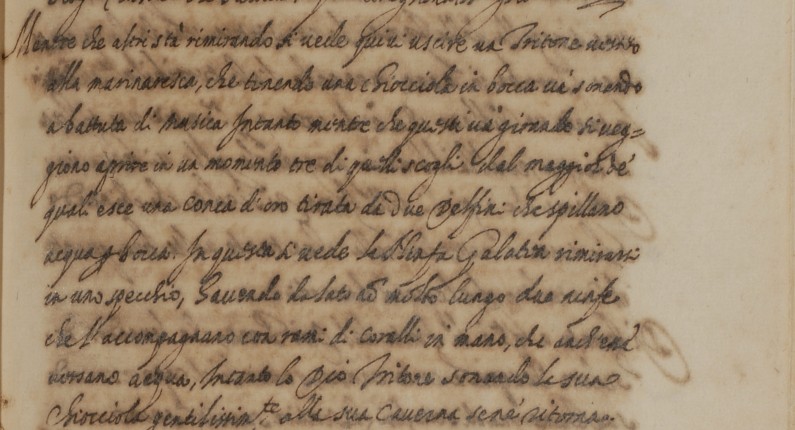 Mentre che altri stà rimirando si vede quivi uscire un Tritone vestito
alla marinaresca, che tenendo una chiocciola in bocca và sonando
a battuta di musica Intanto mentre che questi và girando si veg=
giono aprire in un momento tre di quelli scogli dal maggior de'
quali esce una conca d'oro tirata da due Delfini che spillano
acqua p bocca. In questa si vede la Ninfa Galatea rimirarsi
in uno specchio, havendo da lato nō molto lungo due ninfe
che l'accompagnano con rami di coralli in mano, che
versano acqua, Intanto lo Dio Tritone sonando la sua
chiocciola gentilissim.te alla sua caverna sene ritorna.